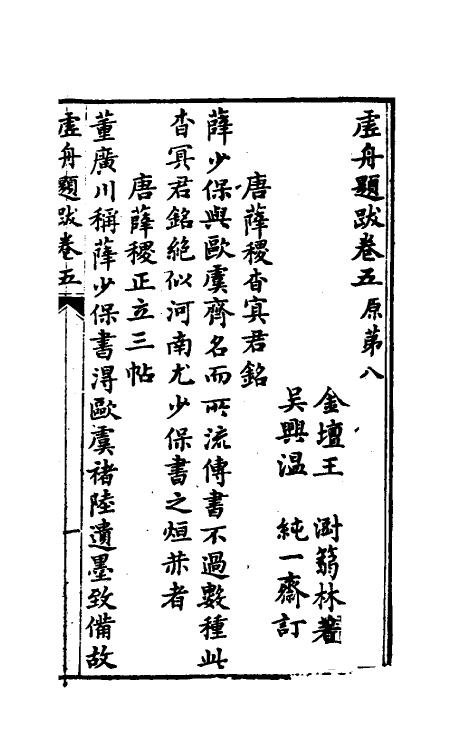 虛舟題跋卷五原第八
金壇王　澍蒻林著
吳興溫　純一齋訂
唐薛稷杳冥君銘
薛少保與歐虞齊名而所流傳書不過數種此
杳冥君銘絶似河南尤少保書之烜赫者
唐薛稷正立三帖
董廣川稱薛少保書得歐虞褚陸遺墨致備故
虛舟題跋卷五
一